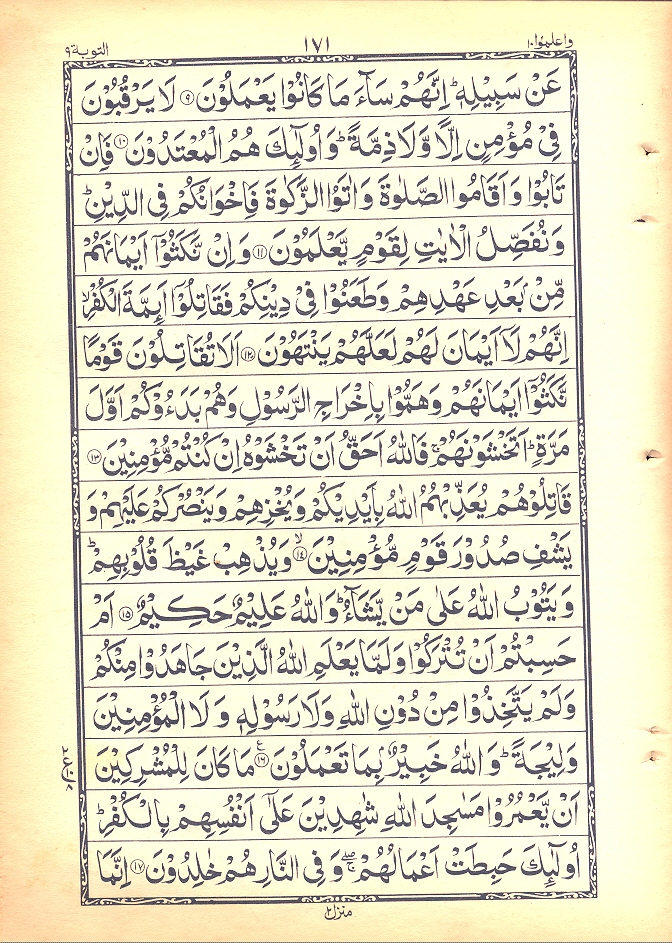 واعلموا ١٠
١٧١
التوبة ٩
عَنْ سَبِيْلِهٖ ؕ اِنَّهُمْ سَآءَ مَا كَانُوْا يَعْمَلُوْنَ ۹ لَا يَرْقُبُوْنَ
فِىْ مُؤْمِنٍ اِلًّا وَّلَا ذِمَّةً ؕ وَاُولٰٓئِكَ هُمُ الْمُعْتَدُوْنَ ۱۰ فَاِنْ
تَابُوْا وَاَقَامُوا الصَّلٰوةَ وَاٰتَوُا الزَّكٰوةَ فَاِخْوَانُكُمْ فِى الدِّيْنِ ؕ
وَنُفَصِّلُ الْاٰيٰتِ لِقَوْمٍ يَّعْلَمُوْنَ ۱۱ وَاِنْ نَّكَثُوْۤا اَيْمَانَهُمْ
مِّنْۢ بَعْدِ عَهْدِهِمْ وَطَعَنُوْا فِىْ دِيْنِكُمْ فَقَاتِلُوْۤا اَئِمَّةَ الْكُفْرِ ۙ
اِنَّهُمْ لَاۤ اَيْمَانَ لَهُمْ لَعَلَّهُمْ يَنْتَهُوْنَ ۱۲ اَلَا تُقَاتِلُوْنَ قَوْمًا
نَّكَثُوْۤا اَيْمَانَهُمْ وَهَمُّوْا بِاِخْرَاجِ الرَّسُوْلِ وَهُمْ بَدَءُوْكُمْ اَوَّلَ
مَرَّةٍ ؕ اَتَخْشَوْنَهُمْ ۚ فَاللّٰهُ اَحَقُّ اَنْ تَخْشَوْهُ اِنْ كُنْتُمْ مُّؤْمِنِيْنَ ۱۳
قَاتِلُوْهُمْ يُعَذِّبْهُمُ اللّٰهُ بِاَيْدِيْكُمْ وَيُخْزِهِمْ وَيَنْصُرْكُمْ عَلَيْهِمْ وَ
يَشْفِ صُدُوْرَ قَوْمٍ مُّؤْمِنِيْنَ ۙ ۱۴ وَيُذْهِبْ غَيْظَ قُلُوْبِهِمْ ؕ
وَيَتُوْبُ اللّٰهُ عَلٰى مَنْ يَّشَآءُ ؕ وَاللّٰهُ عَلِيْمٌ حَكِيْمٌ ۱۵ اَمْ
حَسِبْتُمْ اَنْ تُتْرَكُوْا وَلَمَّا يَعْلَمِ اللّٰهُ الَّذِيْنَ جَاهَدُوْا مِنْكُمْ
وَلَمْ يَتَّخِذُوْا مِنْ دُوْنِ اللّٰهِ وَلَا رَسُوْلِهٖ وَلَا الْمُؤْمِنِيْنَ
وَلِيْجَةً ؕ وَاللّٰهُ خَبِيْرٌۢ بِمَا تَعْمَلُوْنَ ۱۶ ع مَا كَانَ لِلْمُشْرِكِيْنَ
اَنْ يَّعْمُرُوْا مَسٰجِدَ اللّٰهِ شٰهِدِيْنَ عَلٰٓى اَنْفُسِهِمْ بِالْكُفْرِ ؕ
اُولٰٓئِكَ حَبِطَتْ اَعْمَالُهُمْ ۖۚ وَفِى النَّارِ هُمْ خٰلِدُوْنَ ۱۷ اِنَّمَا
منزل ٢